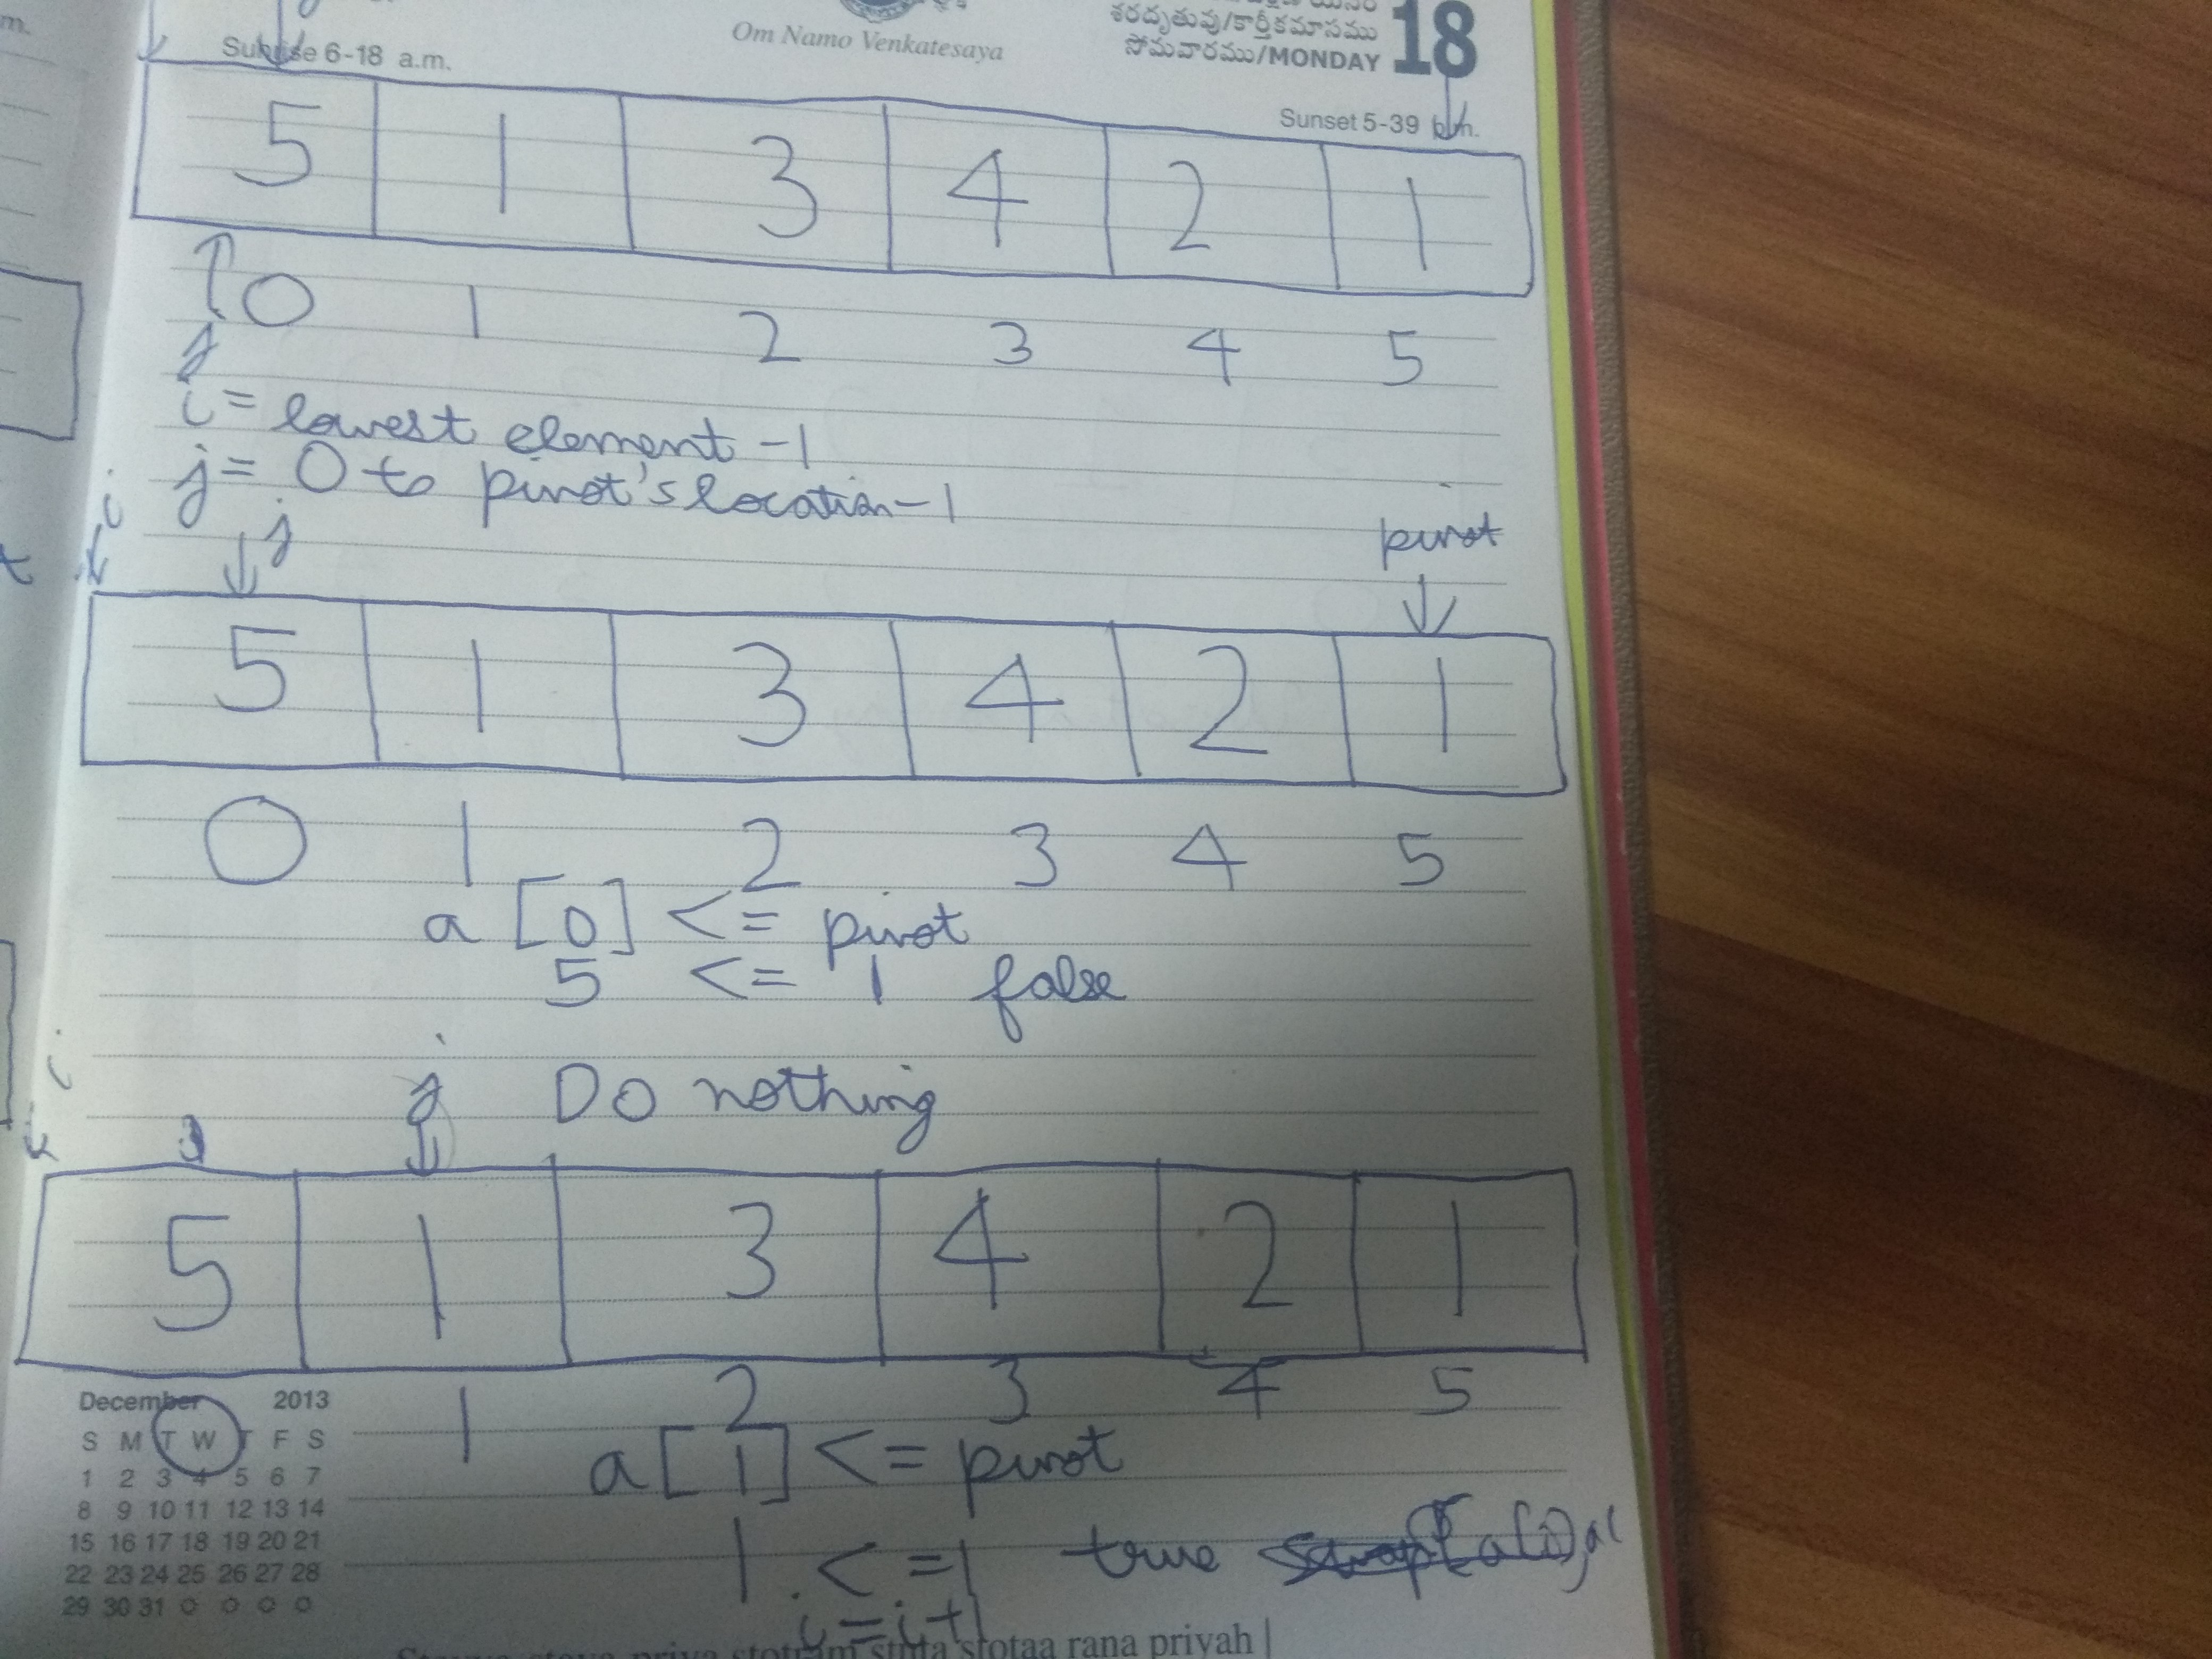 m.
Sunrise 6-18 a.m.
Om Namo Venkatesaya
శరదృతువు/కార్తీకమాసము
సోమవారము/MONDAY 18
Sunset 5-39 p.m.
5 1 3 4 2 1
0 1 2 3 4 5
j
i = lowest element -1
j = 0 to pivot's location -1
i j pivot
5 1 3 4 2 1
0 1 2 3 4 5
a [0] <= pivot
5 <= 1 false
i j Do nothing
5 1 3 4 2 1
1 2 3 4 5
a [1] <= pivot
1 <= 1 true
i = i+1
December 2013
S M T W T F S
1 2 3 4 5 6 7
8 9 10 11 12 13 14
15 16 17 18 19 20 21
22 23 24 25 26 27 28
29 30 31
stotaa rana priyah |